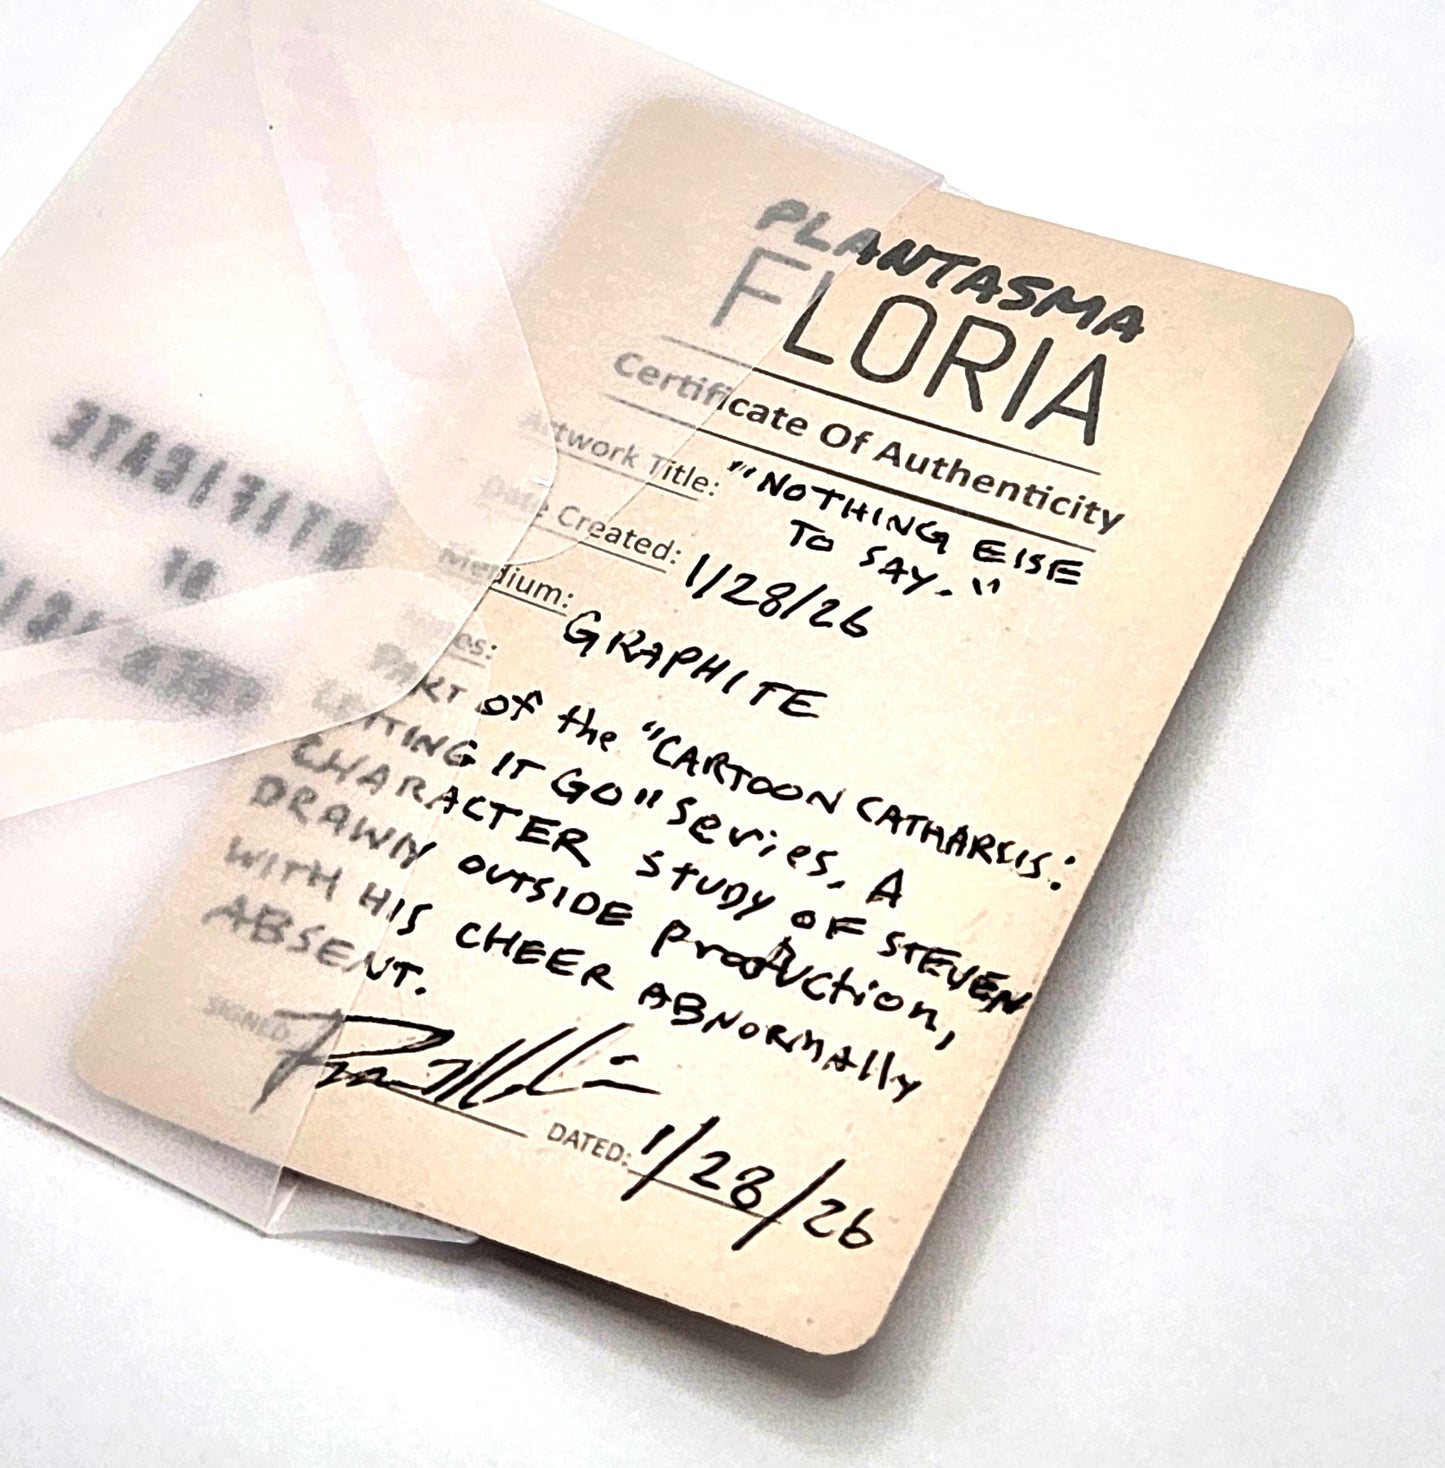 PLANTASMA
FLORIA
Certificate Of Authenticity
Artwork Title: "NOTHING ELSE
TO SAY."
Date Created: 1/28/26
Medium: GRAPHITE
Notes:
PART of the "CARTOON CATHARSIS:
LETTING IT GO" series, A
CHARACTER STUDY OF STEVEN
DRAWN OUTSIDE Production,
WITH HIS CHEER ABNORMAlly
ABSENT.
SIGNED:
DATED: 1/28/26
CERTIFICATE
OF